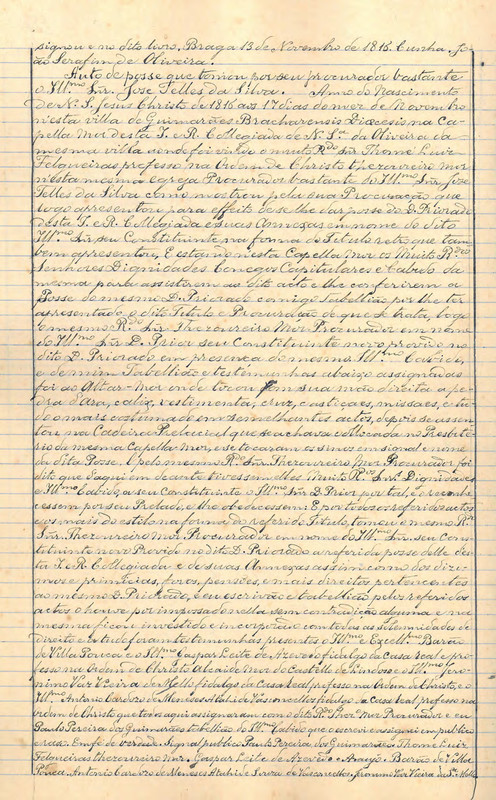 signou e no dito livro. Braga 13 de Novembro de 1816. Cunha. Jo-
ão Serafim de Oliveira.
Auto de posse que tomou por seu procurador bastante
o Ill.mo Snr. José Telles da Silva. Anno do Nascimento
de N. S. Jesus Christo de 1816 aos 17 dias do mez de Novembro
n'esta villa de Guimarães Bracharensis Diœcesis na Ca-
pella Mor desta I. e R. Collegiada de N. Sra. da Oliveira da
mesma villa sendo foi vindo o muito R.do Snr. Thomé Luiz
Felgueiras professo na Ordem de Christo thezoureiro mor
n'esta mesma egreja Procurador bastante do Ill.mo Snr. José
Telles da Silva como mostrou pela sua Procuração que
logo apresentou para effeito de se lhe dar posse do D. Priorado
desta I. e R. Collegiada e suas Annexas em nome do dito
Ill.mo Snr. seu Constituinte na forma do Titulo retro que tam-
bem apresentou, E estando n'esta Capella Mor os Muito R.dos
Senhores Dignidades Conegos Capitulares e Cabido da
mesma para assistirem ao dito acto e lhe conferirem a
Posse do mesmo D. Priorado comigo Tabellião por lhe ter
apresentado o dito Titulo e Procuração de que se trata, logo
o mesmo R.do Snr. Thezoureiro Mor Procurador em nome
do Ill.mo Snr. D. Prior seu Constituinte novo provido no
dito D. Priorado em presença do mesmo Ill.mo Cabido,
e de mim Tabellião e testemunhas abaixo assignadas
foi ao Altar Mor onde tocou com sua mão direita a pe-
dra d'ara, calix, vestimenta, cruz, castiçaes, missaes, e tu-
do o mais costumado em semelhantes actos, depois se assen-
tou na Cadeira Prelacial que se achava collocada no Presbite-
rio da mesma Capella Mor, e se tocaram os sinos em signal e nome
da dita Posse. E pelo mesmo R.do Snr. Thezoureiro Mor Procurador foi
dito que d'aqui em deante tivessem elles Muito R.dos Snrs. Dignidades
e Ill.mo Cabido, a seu Constituinte o Ill.mo Snr. D. Prior por tal, e o reconhe-
cessem por seu Prelado, e lhe obedecessem: E por todos os referidos actos
e os mais do estilo na forma do referido Titulo, tomou o mesmo R.do
Snr. Thezoureiro Mor Procurador em nome do Ill.mo Snr. seu Cons-
tituinte novo Provido no dito D. Priorado a referida posse delle des-
ta I. e R. Collegiada e de suas Annexas assim como dos dizi-
mos e primicias, foros, pensões, e mais direitos pertencentes
ao mesmo D. Priorado, e eu escrivão e tabellião pelos referidos
actos o houve por impossado nella sem contradição alguma e na
mesma ficou investido e incorporado com todas as solemnidades de
Direito e a tudo foram testemunhas presentes o Ill.mo e Excell.mo Barão
de Villa Pouca e o Ill.mo Gaspar Leite de Azevedo fidalgo da casa real e pro-
fesso na Ordem de Christo Alcaide Mor do Castello de Lindoso e o Ill.mo Jero-
nimo Vaz Vieira de Mello fidalgo da Casa real professo na Ordem de Christo, e o
Ill.mo Antonio Cardozo de Menezes Athaide Vasconcellos fidalgo da casa real professo na
ordem de Christo que todos aqui assignaram com o dito R.do Thez. Mor Procurador e eu
Paulo Pereira dos Guimarães tabellião do Ill.mo Cabido que o escrevi e assignei em publico
e raso. Em fé de verdade. Signal publico. Paulo Pereira dos Guimarães. Thomé Luiz
Felgueiras thezoureiro Mor. Gaspar Leite de Azevedo e Araujo. Barão de Villa
Pouca. Antonio Cardozo de Menezes Athaide e Vasconcellos. Jeronimo Vaz Vieira da Sa. Mello